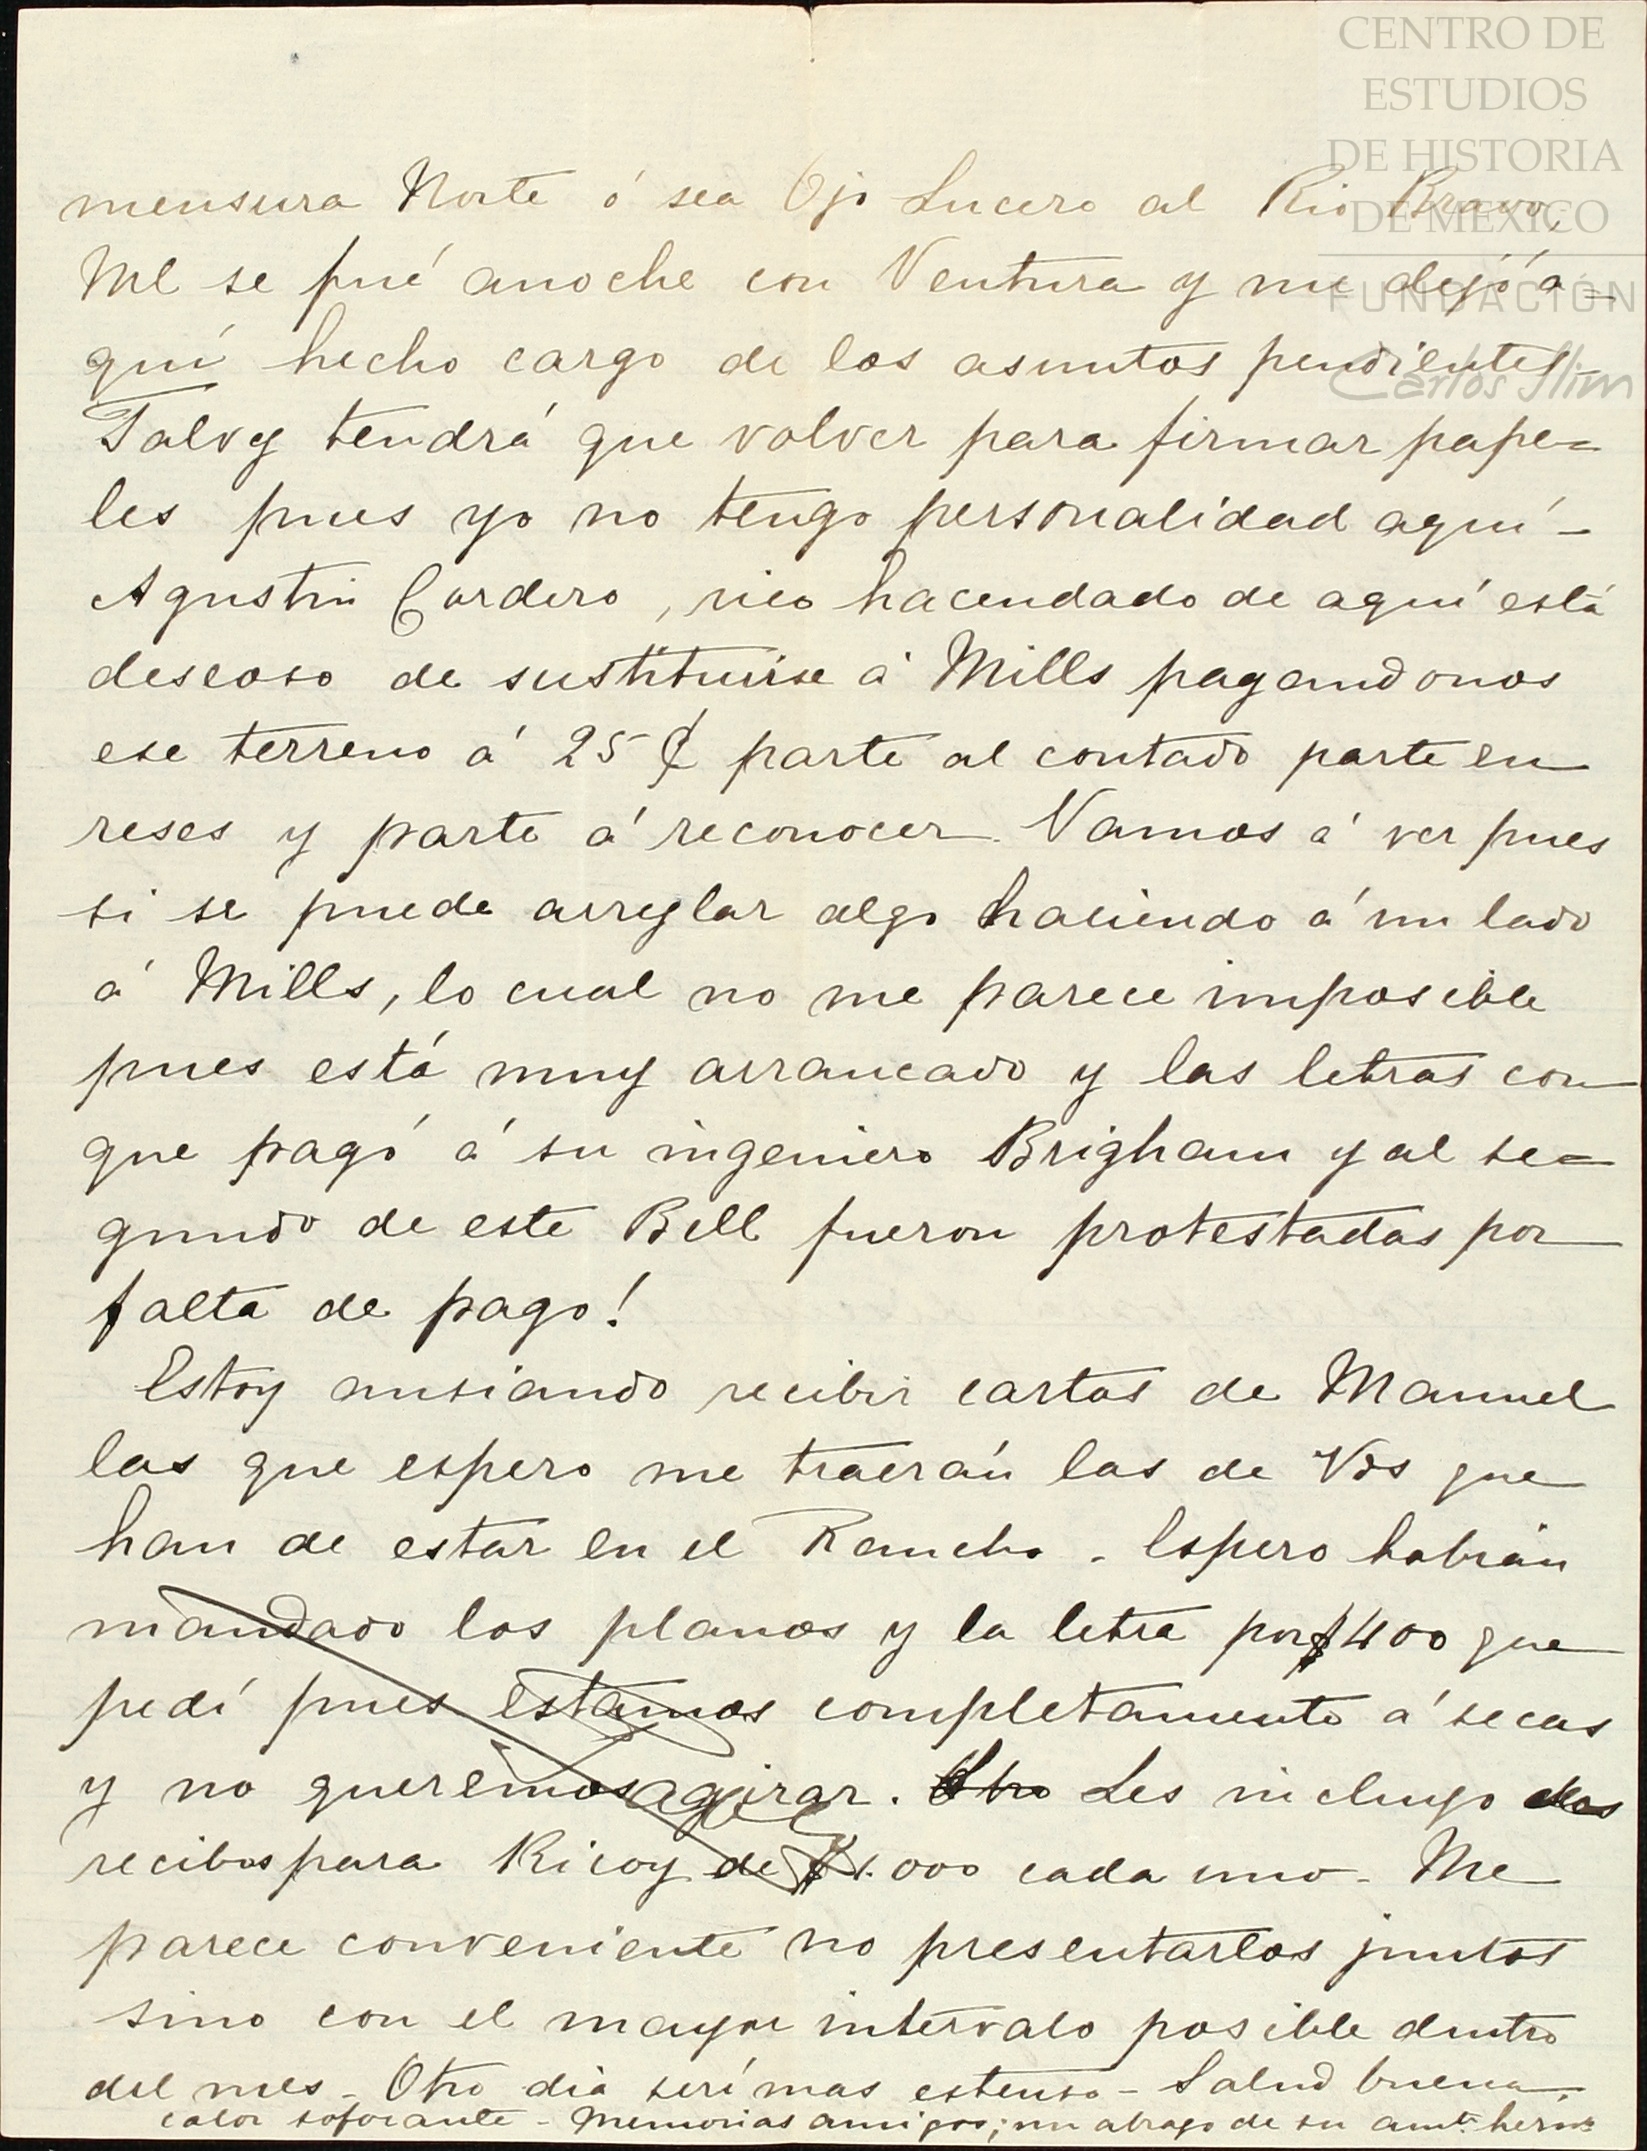 CENTRO DE
ESTUDIOS
DE HISTORIA
DE MEXICO
FUNDACIÓN
Carlos Slim
mensura Norte ó sea Ojo Lucero al Rio Bravo,
Ml se fué anoche con Ventura y me dejó a-
quí hecho cargo de los asuntos pendientes-
Talvez tendrá que volver para firmar pape=
les pues yo no tengo personalidad aquí-
Agustin Cordero, rico hacendado de aquí está
deseoso de sustituirse á Mills pagandonos
ese terreno á 25 ¢ parte al contado parte en
reses y parte á reconocer. Vamos á ver pues
si se puede arreglar algo haciendo á un lado
á Mills, lo cual no me parece imposible
pues está muy arrancado y las letras con
que pagó á su ingeniero Brigham y al se=
gundo de este Bell fueron protestadas por
falta de pago!
Estoy ansiando recibir cartas de Manuel
las que espero me traerán las de Vds que
han de estar en el Rancho. Espero habrán
mandado los planos y la letra por $400 que
pedí pues estamos completamente á secas
y no queremos agirar. Otro Les incluyo dos
recibos para Ricoy de $1.000 cada uno. Me
parece conveniente no presentarlos juntos
sino con el mayor intervalo posible dentro
del mes - Otro dia seré mas estenso - Salud buena,
calor sofocante - Memorias amigos; un abrazo de su amte. herno.